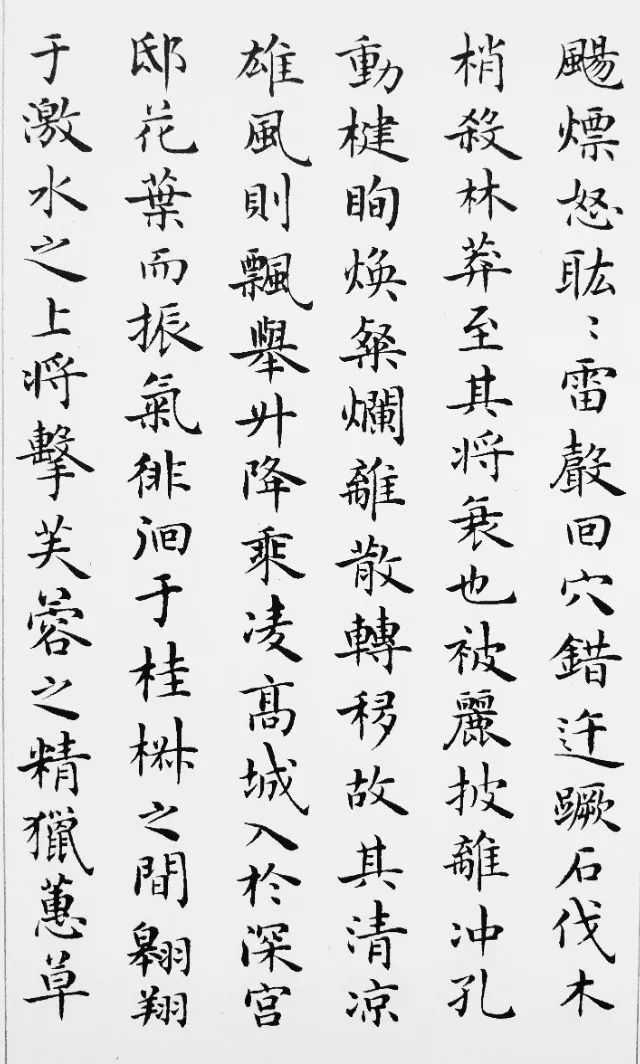 颺熛怒耾〻雷聲回穴錯迕蹶石伐木
梢殺林莽至其将衰也被麗披離冲孔
動楗眴焕粲爛離散轉移故其清凉
雄風則飄舉升降乘凌高城入於深宫
邸花葉而振氣徘徊于桂椒之間翱翔
于激水之上将擊芙蓉之精獵蕙草